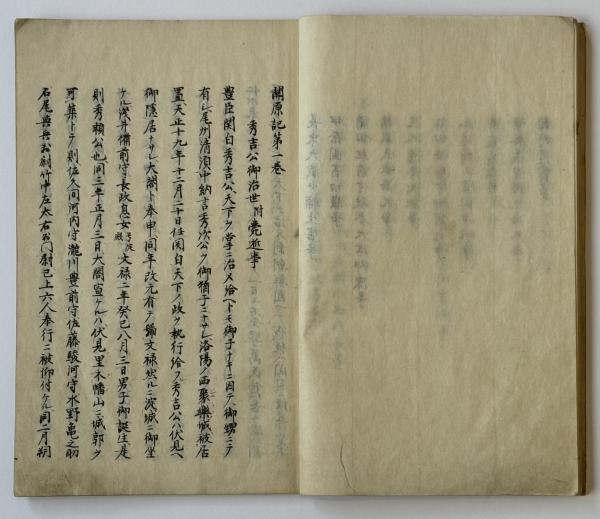 関原記第一巻
秀吉公御治世附薨逝事
豊臣関白秀吉公天下ヲ掌ニ治メ給ヘトモ御子ナキニ因テ御甥ニテ
有シ尾州清須中納言秀次公ヲ御猶子ニナサレ洛陽ノ西聚楽城被居
置天正十九年十二月二十日任関白天下ノ政ヲ執行給フ秀吉公ハ伏見ヘ
御隠居ナサレ大閤ト奉申同年改元有テ文禄然ルニ淀城ニ御坐
ケル浅井備前守長政息女号淀殿文禄二年癸巳八月三日男子御誕生是
則秀頼公也同三年正月三日大閤宣ケルハ伏見里木幡山ニ城郭ヲ
可築トテ則佐久間河内守瀧川豊前守佐藤駿河守水野亀之助
石尾與兵衛尉竹中左太右衛門尉已上六人奉行ニ被仰付ケル同二月朔